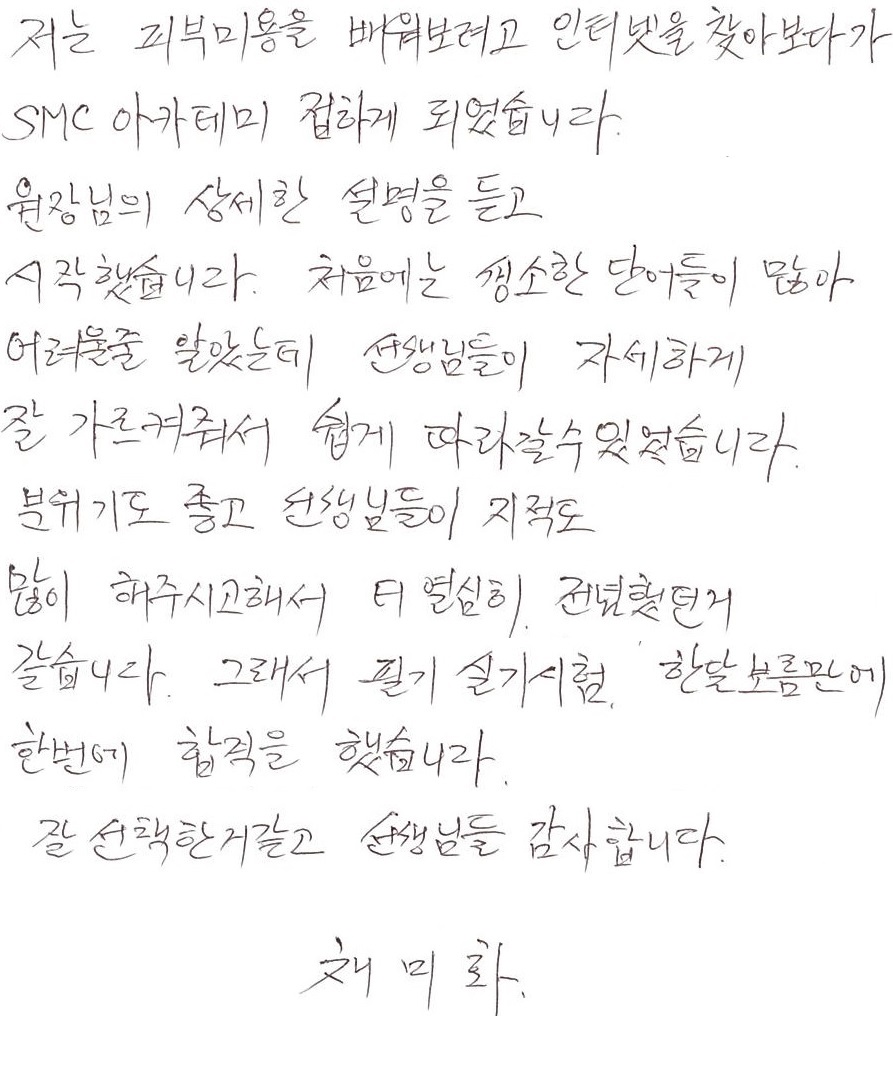 저는 피부미용을 배워보려고 인터넷을 찾아보다가
SMC 아카데미 접하게 되었습니다.
원장님의 상세한 설명을 듣고
시작했습니다. 처음에는 생소한 단어들이 많아
어려울줄 알았는데 선생님들이 자세하게
잘 가르켜줘서 쉽게 따라갈수있었습니다.
분위기도 좋고 선생님들이 지적도
많이 해주시고해서 더 열심히 전념했던거
같습니다. 그래서 필기 실기시험, 한달보름만에
한번에 합격을 했습니다.
잘 선택한거같고 선생님들 감사합니다.
채 미 화.